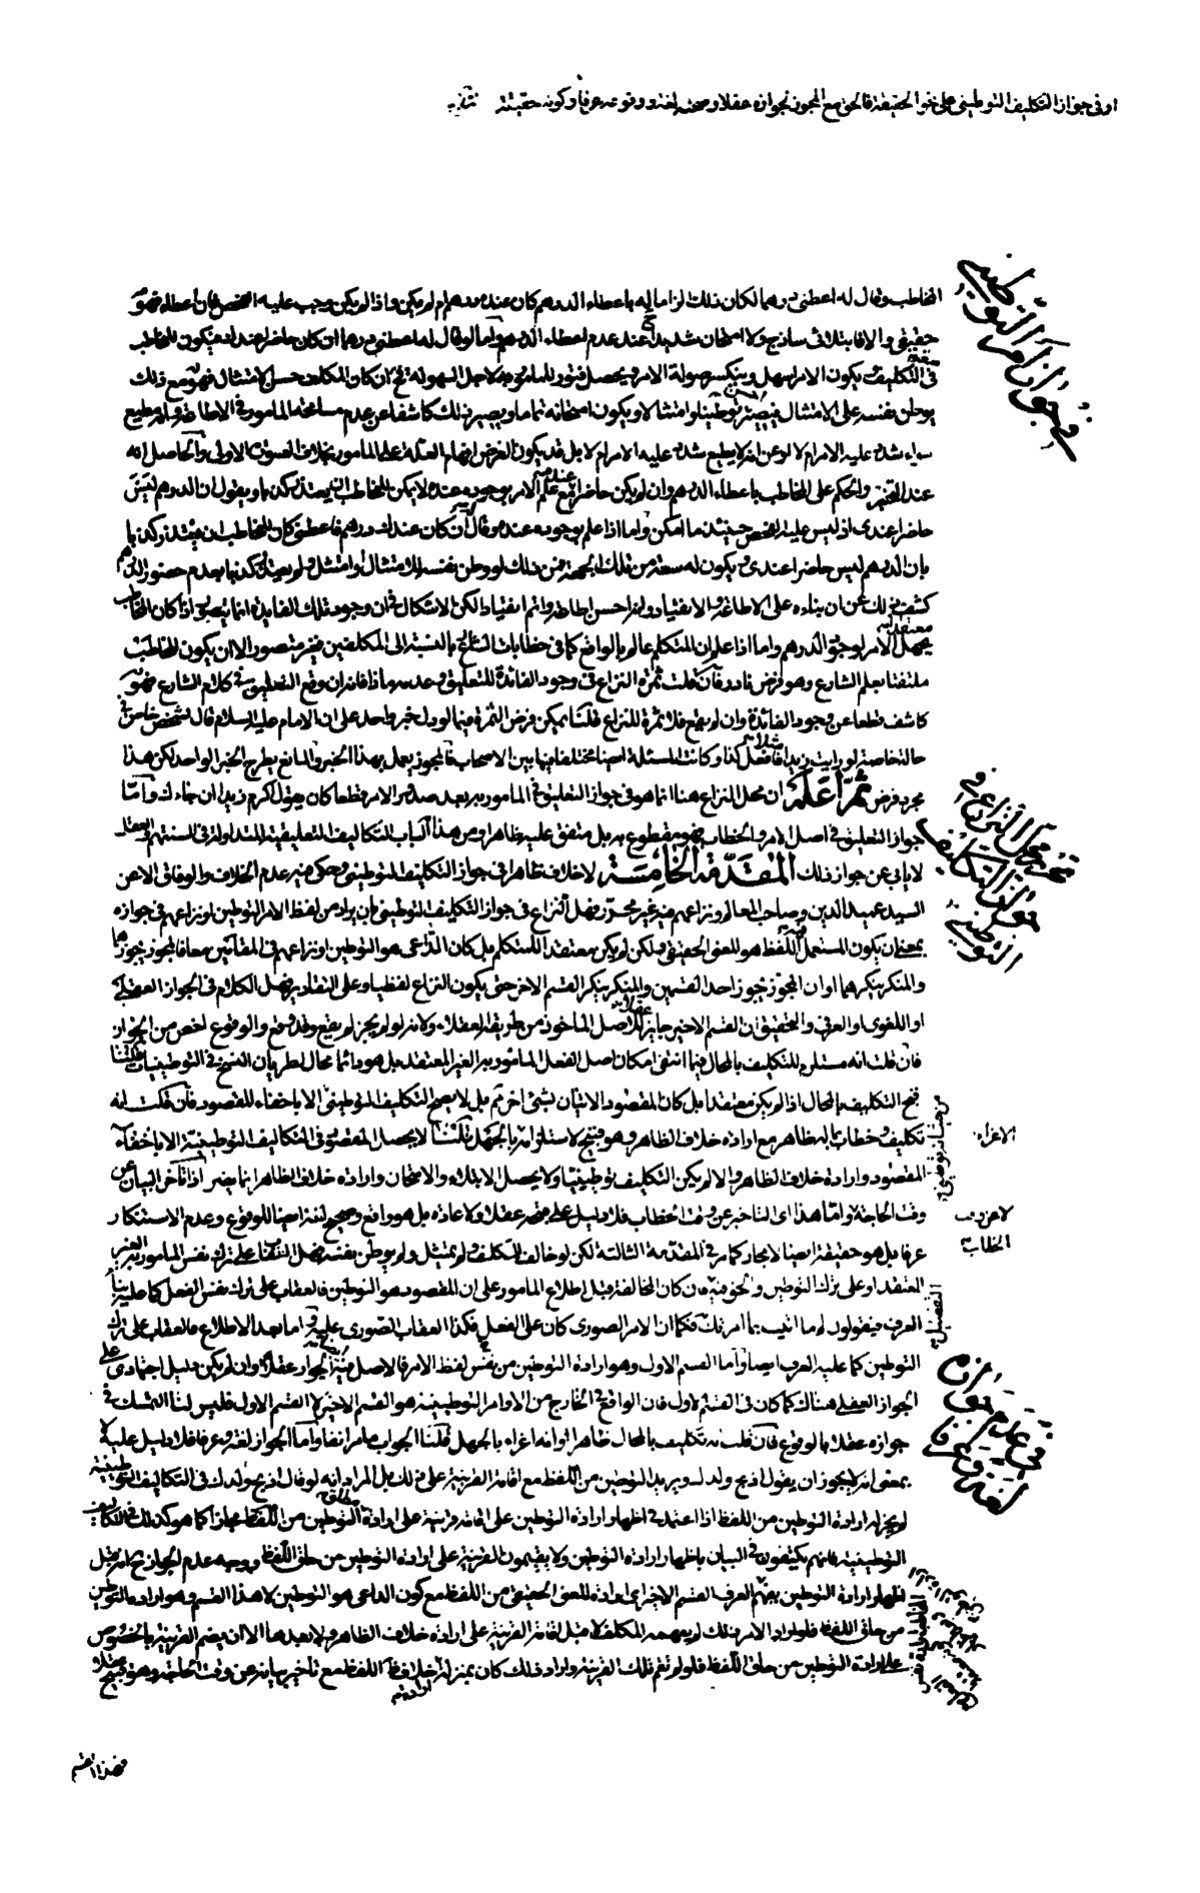 او فی جواز التکلیف التوطینی علی نحو الحقیقة فالحق مع المجوز لجوازه عقلا و صحته لغة و وقوعه عرفا و کونه حقیقة
فی جواز امر التوطینی
المخاطب و قال له اعطنی درهما لکان ذلک الزاما له باعطاء الدرهم کان عنده درهم ام لم یکن و اذا لم یکن وجب علیه الفحص فان اعطاه فهو
حقیقی و الا فابتلائی ساذج و لا امتحان شدیدا عند عدم اعطاء الدرهم و اما لو قال له اعطنی درهما ان کان حاضرا عندک فیکون للمخاطب
فی التکلیف یکون الامر اسهل و ینکسر صولة الامر و یحصل فتور للمامور به لاجل السهولة ثم ان کان المکلف حسن الامتثال فهو مع ذلک
یوطن نفسه علی الامتثال فیصیر توطینا و امتثالا و یکون امتحانه تماما و یصیر ذلک کاشفا عن عدم مسامحة المامور فی الاطاعة و انه مطیع
سواء شدد علیه الامر ام لا او عن انه لا یطیع شدد علیه الامر ام لا بل قد یکون الغرض افهام العلة علی المامور بخلاف الصورة الاولی و الحاصل انه
عند التنجیز و الحکم علی المخاطب باعطاء الدرهم و ان لم یکن حاضرا مع علم الامر بوجوده عنده لا یمکن للمخاطب ان یعتذر کذبا و یقول ان الدرهم لیس
حاضرا عندی اذ لیس علیه الفحص حینئذ ما امکن و اما اذا علم بوجوده عنده و قال ان کان عندک درهم فاعطنی کان للمخاطب ان یعتذر کذبا
بان الدرهم لیس حاضرا عندی و یکون له سعة من تلک الجهة فمن ذلک لو وطن نفسه للامتثال او امتثل و لم یعتذر کذبا بعدم حضور الدرهم
کشف ذلک عن ان بناءه علی الاطاعة و الانقیاد و انه احسن اطاعة و اتم انقیادا لکن الاشکال فی ان وجود تلک الفایدة انما یتصور اذا کان المخاطب
یجهل الامر بوجود الدرهم و اما اذا علم ان المتکلم عالم بالواقع کما فی خطابات الشارع بالنسبة الی المکلفین فغیر متصور الا ان یکون المخاطب
ملتفتا بعلم الشارع و هو فرض نادر فان قلت ثمرة النزاع فی وجود الفائدة للتعلیق و عدمها ماذا فانه ان وقع التعلیق فی کلام الشارع فهو
کاشف قطعا عن وجود الفائدة و ان لم یقع فلا ثمرة للنزاع قلنا یمکن فرض الثمرة فیما لو دل خبر واحد علی ان الامام علیه السلام قال لشخص خاص فی
حالة خاصة لو رایت زیدا فافعل کذا و کانت المسئلة ایضا مختلفا فیها بین الاصحاب فالمجوز یعمل بهذا الخبر و المانع یطرح الخبر الواحد لکن هذا
مجرد فرض ثم اعلم ان محل النزاع هنا انما هو فی جواز التعلیق فی المامور به بعد صدور الامر قطعا کان یقول اکرم زیدا ان جاءک و اما
جواز التعلیق فی اصل الامر و الخطاب فهو مقطوع به بل متفق علیه ظاهرا و من هذا الباب التکالیف التعلیقیة المتداولة فی السنتهم و العقل
فی تحریر محل النزاع فی جواز التکلیف التوطینی
لا یابی عن جواز ذلک المقدمة الخامسة لا خلاف ظاهرا فی جواز التکلیف التوطینی و حکی فیه عدم الخلاف و الوفاق الا عن
السید عمید الدین و صاحب المعالم و نزاعهم فیه غیر محرر فهل النزاع فی جواز التکلیف التوطینی بان یراد من لفظ الامر التوطین او نزاعهم فی جوازه
بمعنی ان یکون المستعمل فیه اللفظ هو للمعنی الحقیقی و لکن لم یکن معتقدا للمتکلم بل کان الداعی هو التوطین او نزاعهم فی المقامین معا فالمجوز یجوزهما
و المنکر ینکرهما او ان المجوز یجوز احد القسمین و المنکر ینکر القسم الاخر حتی یکون النزاع لفظیا و علی التقادیر فهل الکلام فی الجواز العقلی
او اللغوی او العرفی و التحقیق ان القسم الاخیر جایز عقلا للاصل الماخوذ من طریقة العقلاء و لانه لو لم یجز لم یقع و قد وقع و الوقوع اخص من الجواز
فان قلت انه مستلزم للتکلیف بالمحال فیما انتفی امکان اصل الفعل المامور به الغیر المعتقد بل هو دائما محال لطریان النسخ فی التوطینیات قلنا
قبح التکلیف بالمحال اذا لم یکن معتقدا بل کان المقصود الاتیان بشئ اخر ثم بل لا یصح التکلیف التوطینی الا باخفاء للمقصود فان قلت انه
تکلیف و خطاب بما له ظاهر مع ارادة خلاف الظاهر و هو قبیح لاستلزامه بالجهل قلنا لا یحصل المقصود فی التکالیف التوطینیة الا باخفاء
الاغراء
المقصود و ارادة خلاف الظاهر و الا لم یکن التکلیف توطینیا و لا یحصل الابتلاء و الامتحان و ارادة خلاف الظاهر انما یضر اذا تاخر البیان عن
وقت الحاجة و اما هذا ای التاخیر عن وقت الخطاب فلا دلیل علی منعه عقلا و لا عادة بل هو واقع و صحیح لغة ایضا للوقوع و عدم الاستنکار
الخطاب
عرفا بل هو حقیقة ایضا لا مجاز کما مر فی المقدمة الثالثة لکن لو خالف المکلف و لم یمتثل و لم یوطن نفسه فهل العقاب علی ترک نفس المامور به الغیر
المعتقد او علی ترک التوطین و الحق فیه ان کان المخالفة قبل اطلاع المامور علی ان المقصود هو التوطین فالعقاب علی ترک نفس الفعل کما علیه بناء
التفصیل
العرف فیقولون له ما اتیت بما امرتک فکما ان الامر الصوری کان علی الفعل فکذا العقاب الصوری علیه و اما بعد الاطلاع فالعقاب علی ترک
التوطین کما علیه العرف ایضا و اما القسم الاول و هو ارادة التوطین من نفس لفظ الامر فالاصل فیه الجواز عقلا و ان لم یکن دلیل اجتهادی علی
فی عدم جوازه لغة و عرفا
الجواز العقلی هناک کما کان فی القسم الاول فان الواقع فی الخارج من الاوامر التوطینیة هو القسم الاخیر لا القسم الاول فلیس لنا التمسک فی
جوازه عقلا بالوقوع فان قلت انه تکلیف بالمحال ظاهرا و انه اغراء بالجهل قلنا الجواب ما مر انفا و اما الجواز لغة و عرفا فلا دلیل علیه
بمعنی انه لا یجوز ان یقول اذبح ولدک و یرید التوطین من اللفظ مع اقامة القرینة علی ذلک بل المراد انه لو قال اذبح ولدک فی التکالیف التوطینیة
لم یجز له ارادة التوطین من اللفظ اذا اعتمد فی اظهار ارادة التوطین علی اقامة قرینة علی ارادة التوطین من اللفظ مجازا کما هو کذلک فی التکالیف
التوطینیة فانهم یکتفون فی البیان باظهار ارادة التوطین و لا یقیمون القرینة علی ارادة التوطین من حاق اللفظ و وجه عدم الجواز انه قبل
اظهار ارادة التوطین یفهم العرف القسم الاخیر ای ارادة المعنی الحقیقی من اللفظ مع کون الداعی هو التوطین لا هذا القسم و هو ارادة التوطین
من حاق اللفظ فلو اراد الامر ذلک لم یفهمه المکلف لا قبل اقامة القرینة علی ارادة خلاف الظاهر و لا بعدها الا ان یضم القرینة بالخصوص
علی ارادة التوطین من حاق اللفظ فلو لم تقم تلک القرینة و اراد ذلک کان بمنزلة ارادة خلاف اللفظ مع تاخیر بیانه عن وقت الحاجة و هو قبیح
فهذا القسم